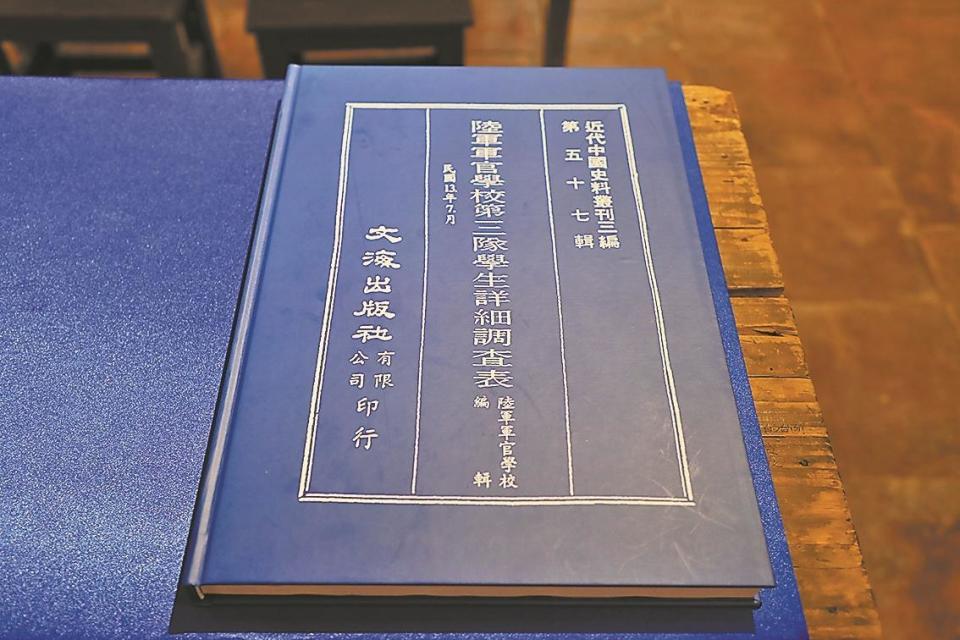 近代中國史料叢刊三編
第五十七輯
陸軍軍官學校第三隊學生詳細調查表
民國13年7月
陸軍軍官學校
編輯
文海出版社
有限
公司
印行